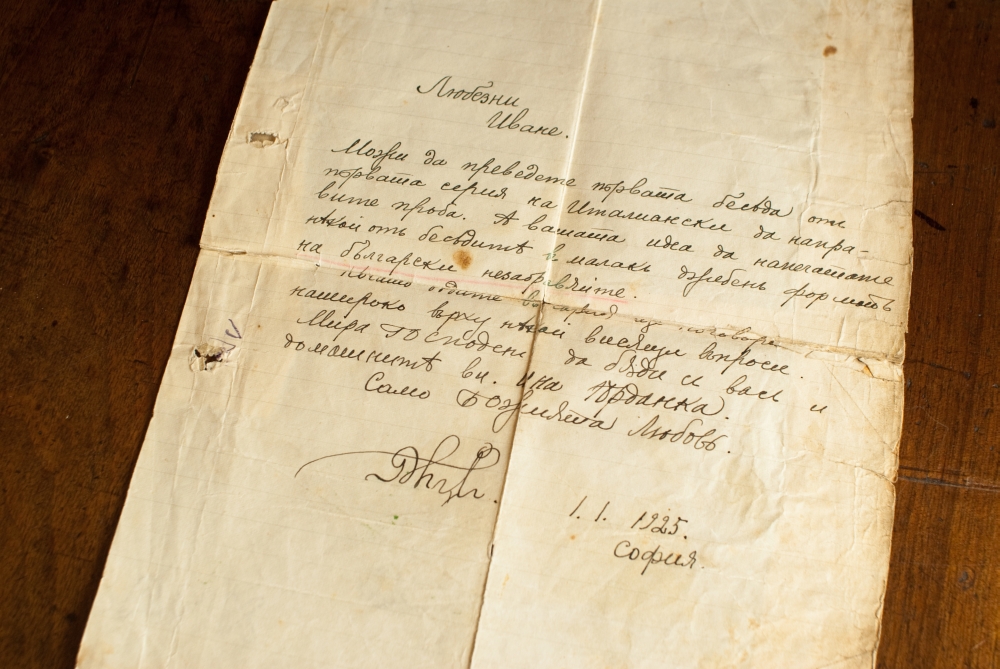 Любезни
Иване.
Можи да преведете първата беседа отъ
първата серия на Италиански да напра-
вите проба. А вашата идея да напечатате
нѣкой отъ беседитѣ в малакъ джебенъ форматъ
на български незабравяйте.
дойдите
нашироко върху нѣкой висящи въпроси.
Мира Господень да бѫди и вас и
домашнитѣ ви. и на Юрданка.
Само Божията Любовь.
1. 1. 1925.
София.